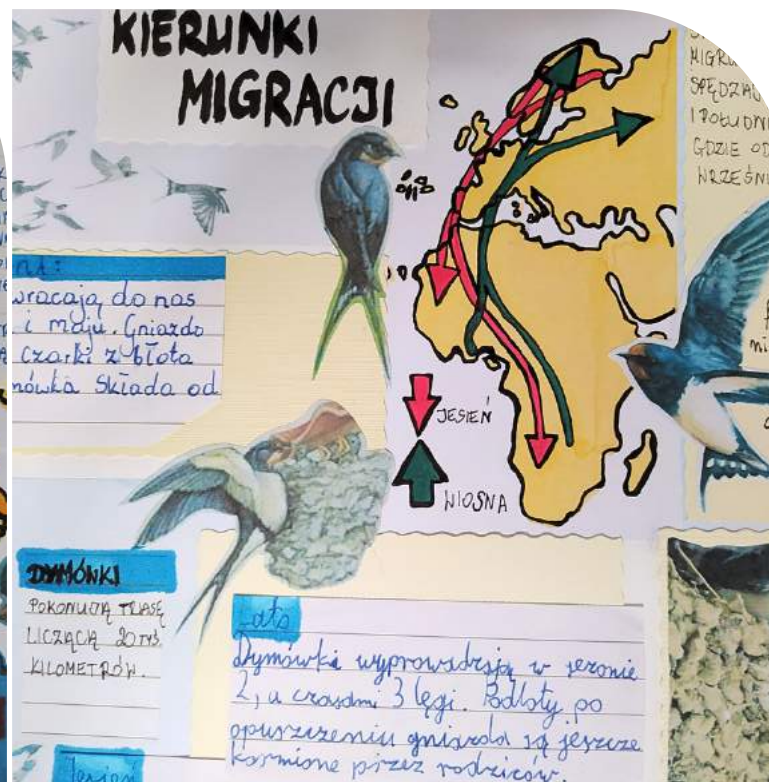 KIERUNKI
MIGRACJI
MIGRU
SPĘDZAJ
I POŁUDNI
GDZIE OD
WRZEŚNI
wracają do nas
i maju. Gniazdo
czarki z błota
mówka składa od
JESIEŃ
WIOSNA
DYMÓWKI
POKONUJĄ TRASĘ
LICZĄCĄ 20 TYŚ.
KILOMETRÓW.
Lato
Dymówki wyprowadzają w sezonie
2, a czasami 3 lęgi. Podloty po
opuszczeniu gniazda są jeszcze
karmione przez rodziców.
Jesień